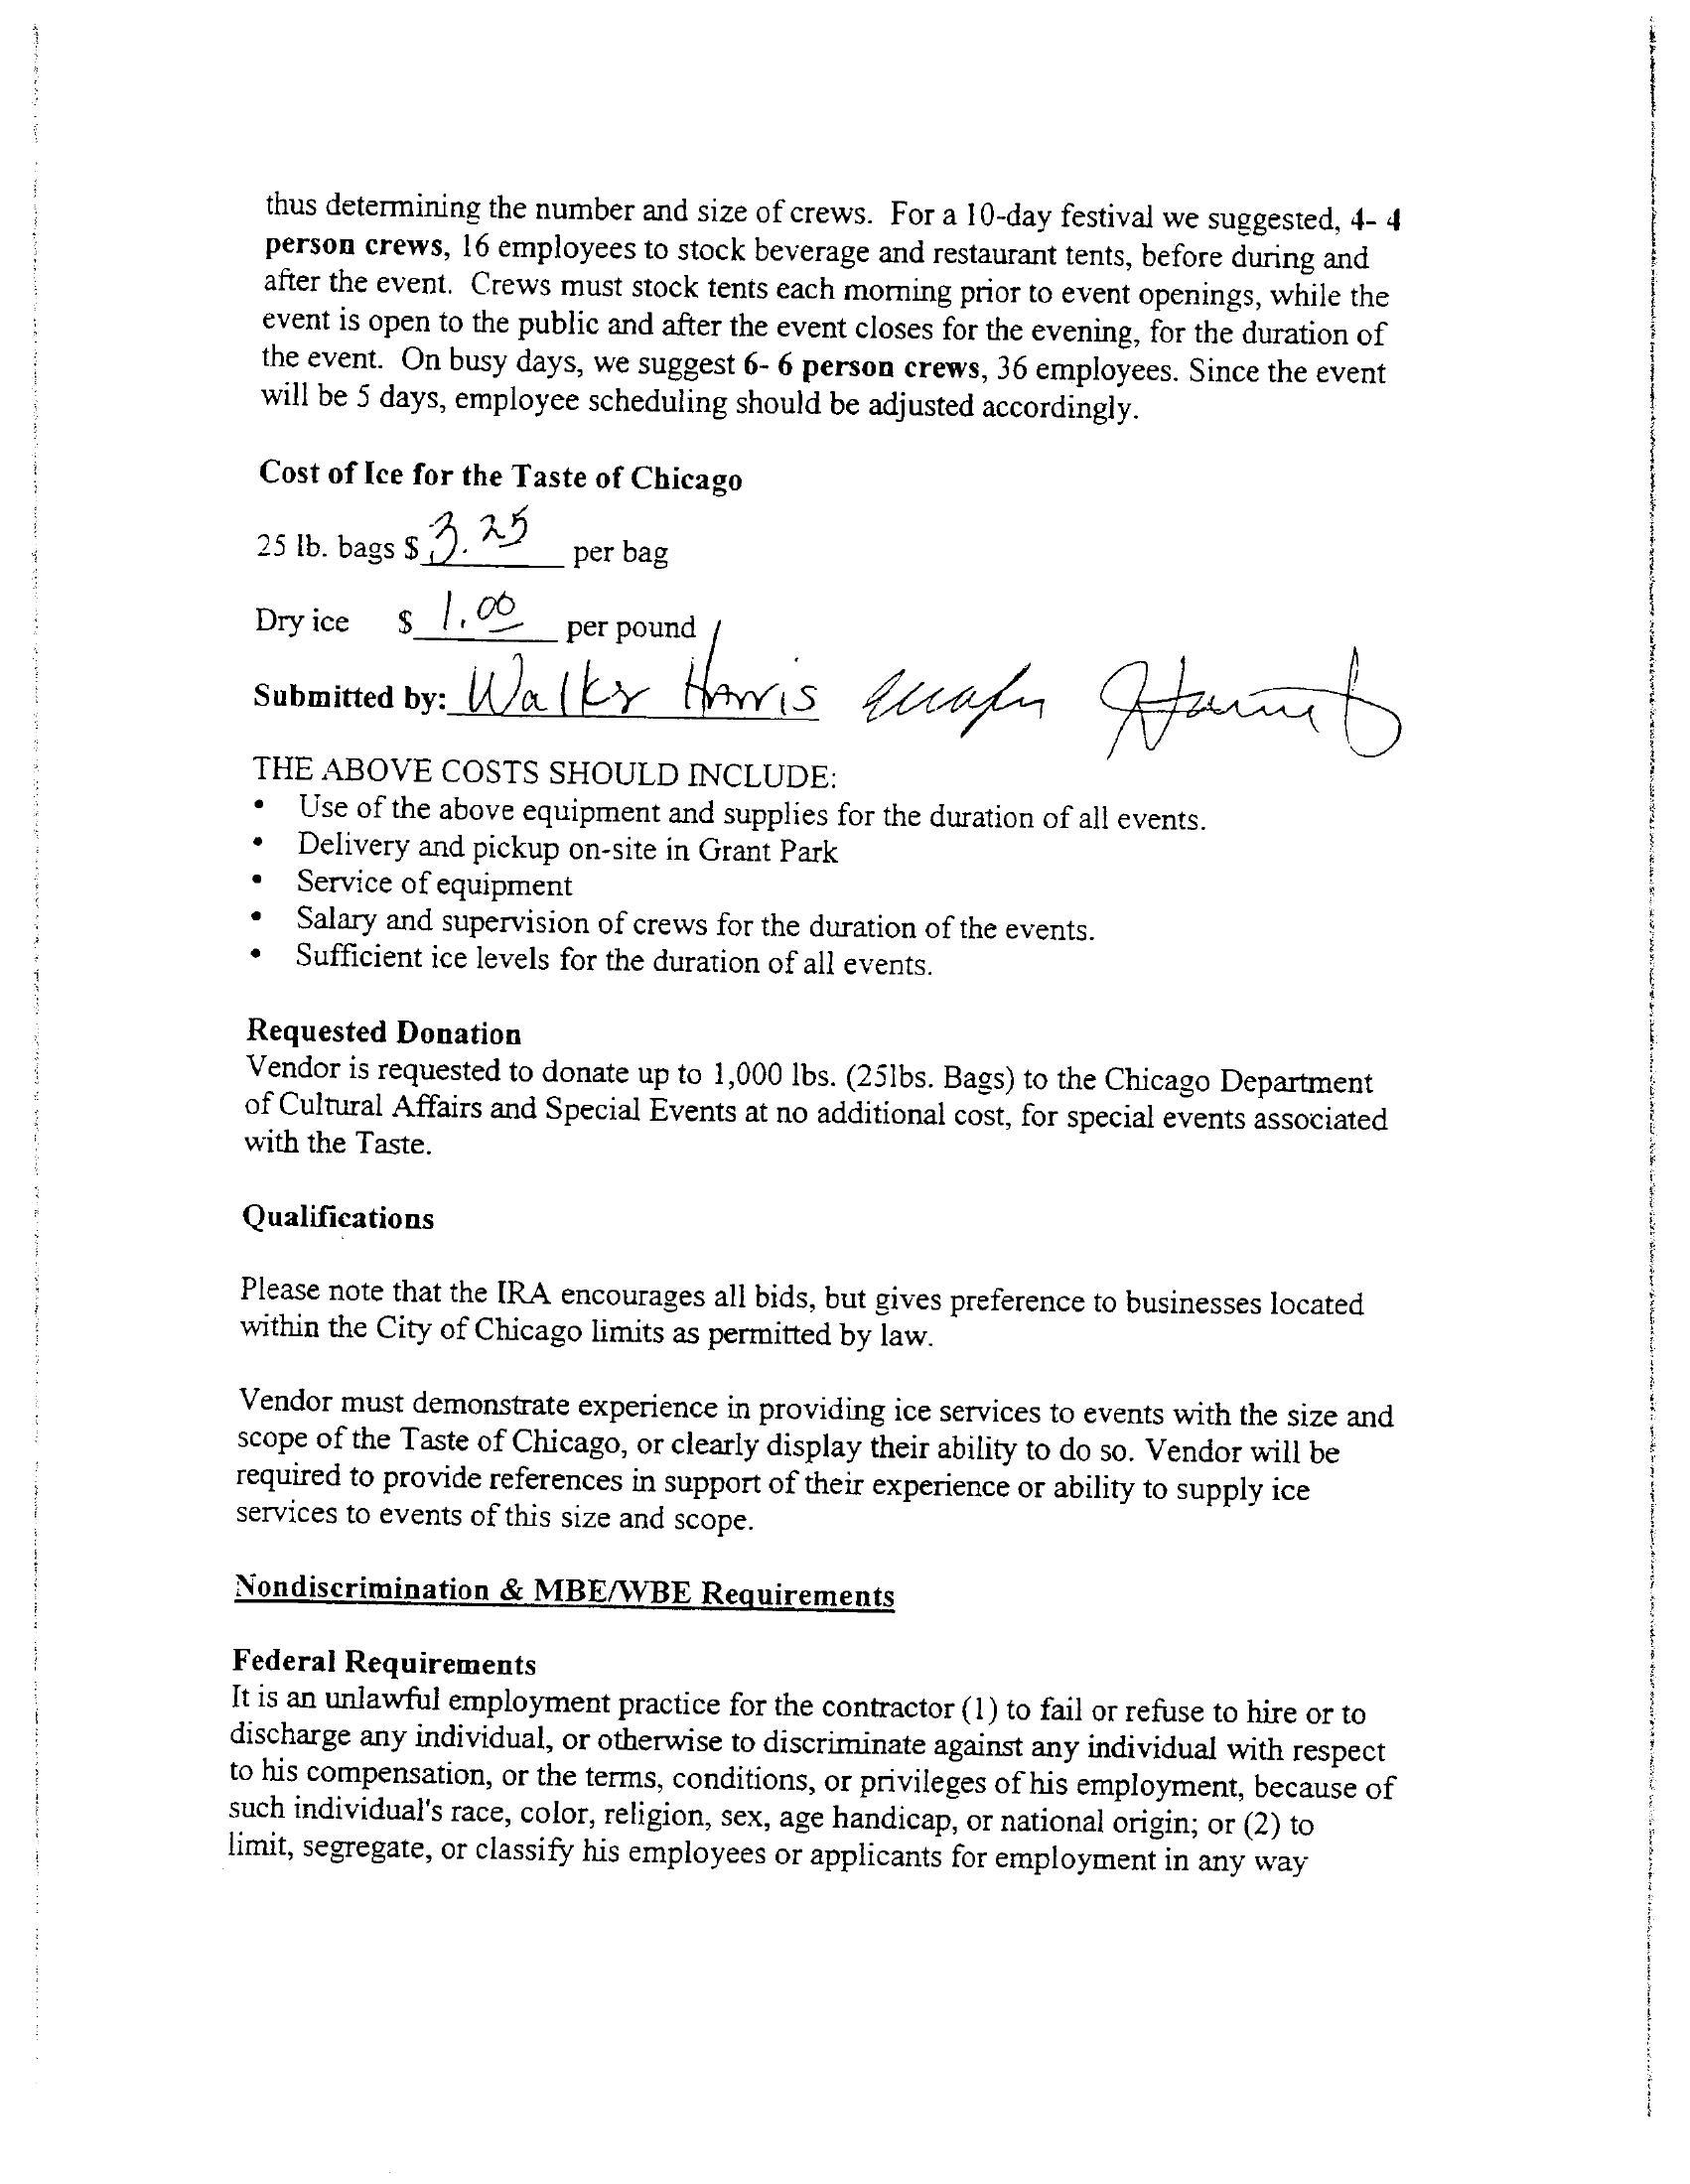 thus determining the number and size of crews. For a 10-day festival we suggested, 4- 4
person crews, 16 employees to stock beverage and restaurant tents, before during and
after the event. Crews must stock tents each morning prior to event openings, while the
event is open to the public and after the event closes for the evening, for the duration of
the event. On busy days, we suggest 6- 6 person crews, 36 employees. Since the event
will be 5 days, employee scheduling should be adjusted accordingly.
Cost of Ice for the Taste of Chicago
25 lb. bags $ 3.25 per bag
Dry ice $ 1.00 per pound
Submitted by: Walter Harris
THE ABOVE COSTS SHOULD INCLUDE:
• Use of the above equipment and supplies for the duration of all events.
• Delivery and pickup on-site in Grant Park
• Service of equipment
• Salary and supervision of crews for the duration of the events.
• Sufficient ice levels for the duration of all events.
Requested Donation
Vendor is requested to donate up to 1,000 lbs. (25lbs. Bags) to the Chicago Department
of Cultural Affairs and Special Events at no additional cost, for special events associated
with the Taste.
Qualifications
Please note that the IRA encourages all bids, but gives preference to businesses located
within the City of Chicago limits as permitted by law.
Vendor must demonstrate experience in providing ice services to events with the size and
scope of the Taste of Chicago, or clearly display their ability to do so. Vendor will be
required to provide references in support of their experience or ability to supply ice
services to events of this size and scope.
Nondiscrimination & MBE/WBE Requirements
Federal Requirements
It is an unlawful employment practice for the contractor (1) to fail or refuse to hire or to
discharge any individual, or otherwise to discriminate against any individual with respect
to his compensation, or the terms, conditions, or privileges of his employment, because of
such individual's race, color, religion, sex, age handicap, or national origin; or (2) to
limit, segregate, or classify his employees or applicants for employment in any way